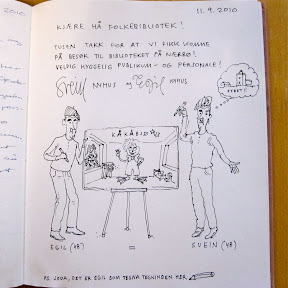 2010
11.9.2010
KJÆRE HÅ FOLKEBIBLIOTEK!
TUSEN TAKK FOR AT VI FIKK KOMME
PÅ BESØK TIL BIBLIOTEKET PÅ NÆRBØ!
VELDIG HYGGELIG PUBLIKUM - OG PERSONALE!
Svein NYHUS og Egil NYHUS
FYRET!
EGIL (48)
=
SVEIN (48)
PS. JODA, DET ER EGIL SOM TEGNA TEGNINGEN HER